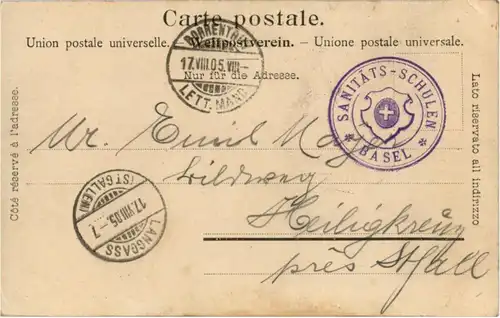 Carte postale.
Union postale universelle. – Weltpostverein. – Unione postale universale.
Nur für die Adresse.
PORRENTRUY
17.VIII.05.VIII–
LETT. MAND.
SANITÄTS-SCHULEN
BASEL
Côté réservé à l'adresse.
Lato riservato all indirizzo
Mr. Emil Mayer
Wildweg
Heiligkreuz
près St Gall
(ST GALLEN)
17.VIII.05.–7
LANGGASS